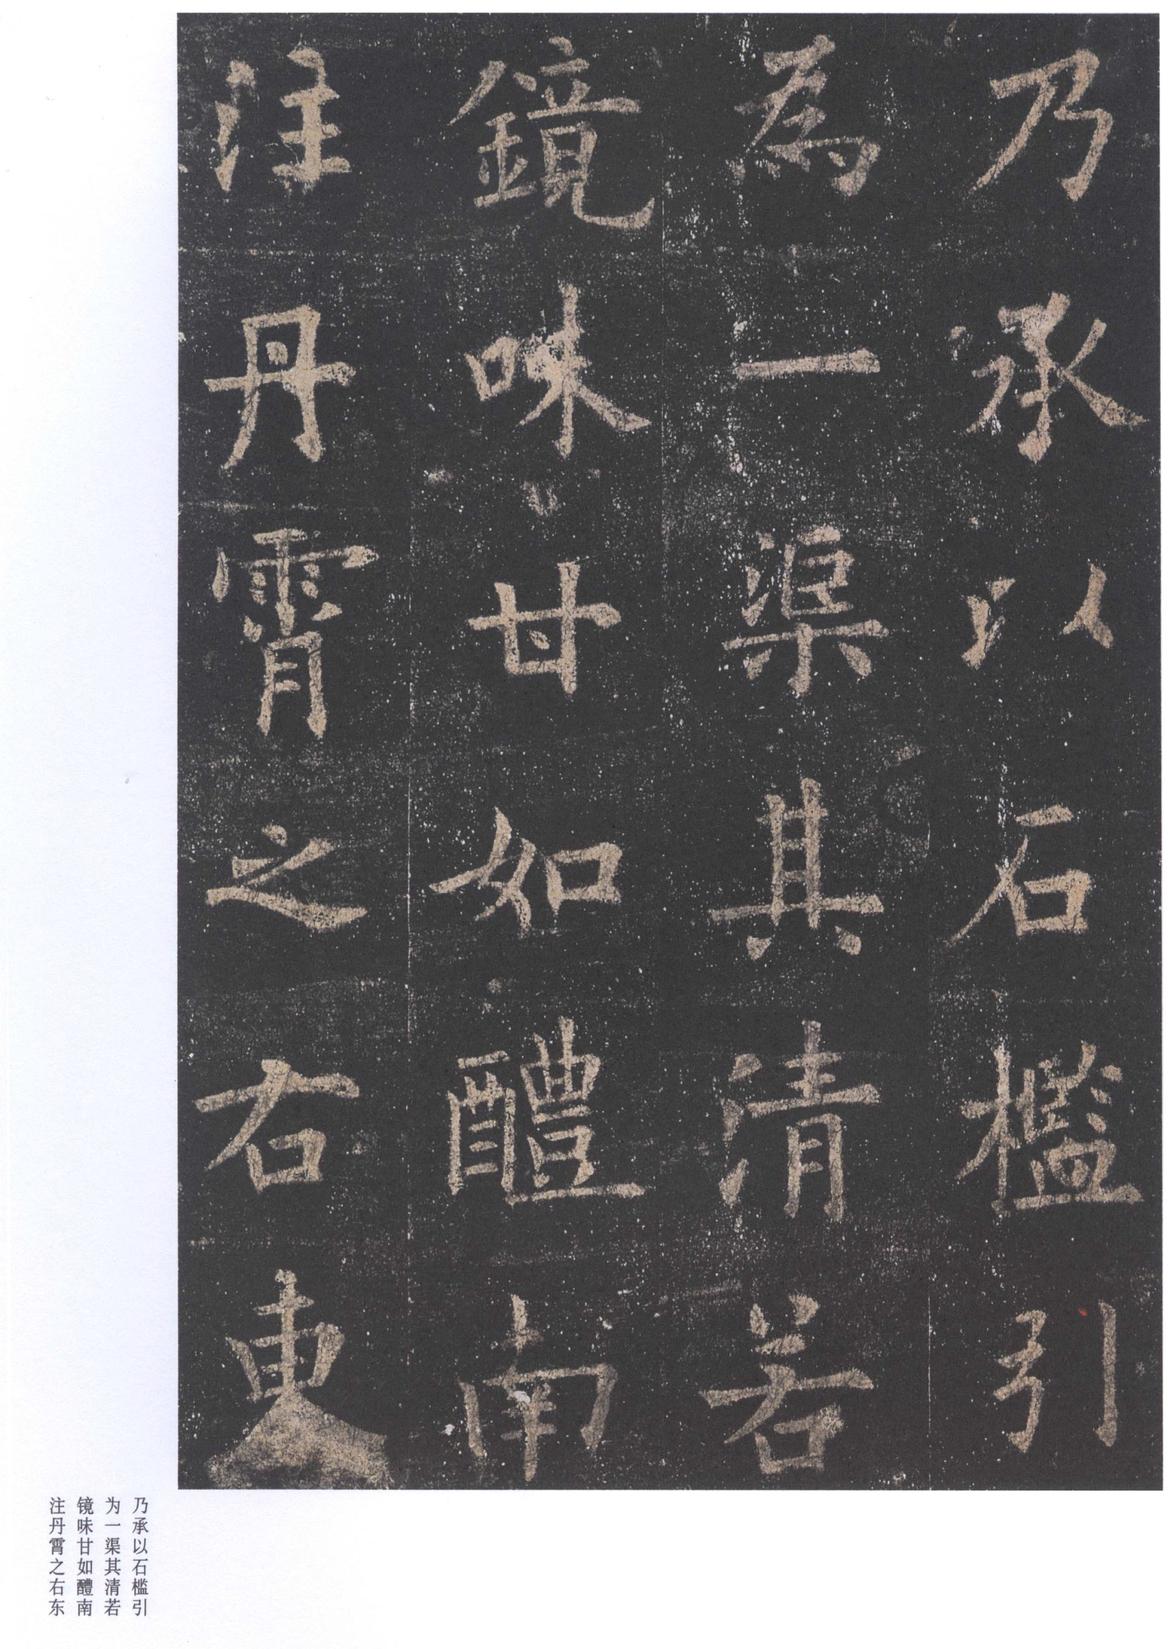 乃承以石檻引
為一渠其清若
鏡味甘如醴南
注丹霄之右東
乃承以石槛引
为一渠其清若
镜味甘如醴南
注丹霄之右东